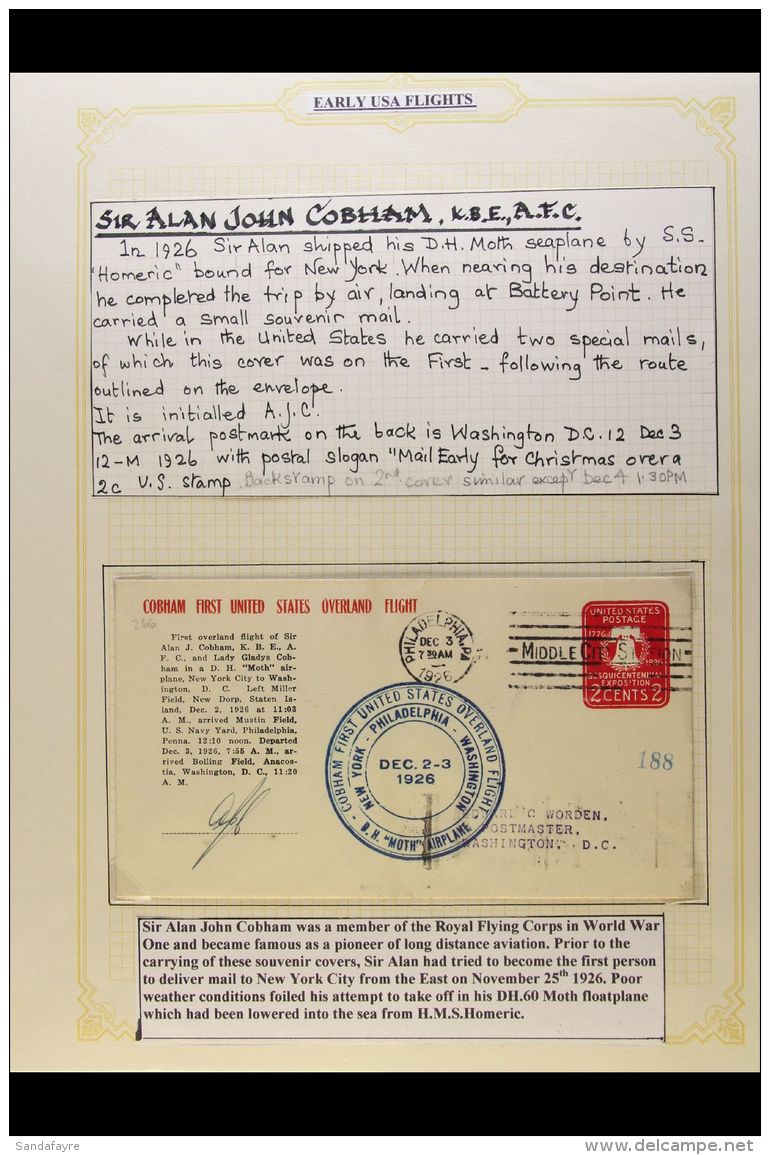 EARLY USA FLIGHTS
SIR ALAN JOHN COBHAM, K.B.E., A.F.C.
In 1926 Sir Alan shipped his D.H. Moth seaplane by S.S.
"Homeric" bound for New York. When nearing his destination
he completed the trip by air, landing at Battery Point. He
carried a small souvenir mail.
While in the United States he carried two special mails,
of which this cover was on the First - following the route
outlined on the envelope.
It is initialled A.J.C.
The arrival postmark on the back is Washington D.C. 12 Dec 3
12-M 1926 with postal slogan "Mail Early for Christmas over a
2c U.S. stamp. Backstamp on 2nd cover similar except Dec 4 1.30PM
COBHAM FIRST UNITED STATES OVERLAND FLIGHT
266
First overland flight of Sir
Alan J. Cobham, K. B. E., A.
F. C., and Lady Gladys Cob-
ham in a D. H. "Moth" air-
plane, New York City to Wash-
ington, D. C. Left Miller
Field, New Dorp, Staten Is-
land, Dec. 2, 1926 at 11:03
A. M., arrived Mustin Field,
U. S. Navy Yard, Philadelphia,
Penna. 12:10 noon. Departed
Dec. 3, 1926, 7:55 A. M., ar-
rived Bolling Field, Anacos-
tia, Washington, D. C., 11:20
A. M.
PHILADELPHIA, PA
DEC 3
7 30 AM
1926
MIDDLE CITY STATION
UNITED STATES
POSTAGE
1776 1926
SESQUICENTENNIAL
EXPOSITION
2 CENTS 2
COBHAM FIRST UNITED STATES OVERLAND FLIGHT
NEW YORK - PHILADELPHIA - WASHINGTON
DEC. 2-3
1926
D. H. "MOTH" AIRPLANE
188
WORDEN,
POSTMASTER,
WASHINGTON, D.C.
Sir Alan John Cobham was a member of the Royal Flying Corps in World War
One and became famous as a pioneer of long distance aviation. Prior to the
carrying of these souvenir covers, Sir Alan had tried to become the first person
to deliver mail to New York City from the East on November 25th 1926. Poor
weather conditions foiled his attempt to take off in his DH.60 Moth floatplane
which had been lowered into the sea from H.M.S.Homeric.
Sandafayre
www.delcampe.net